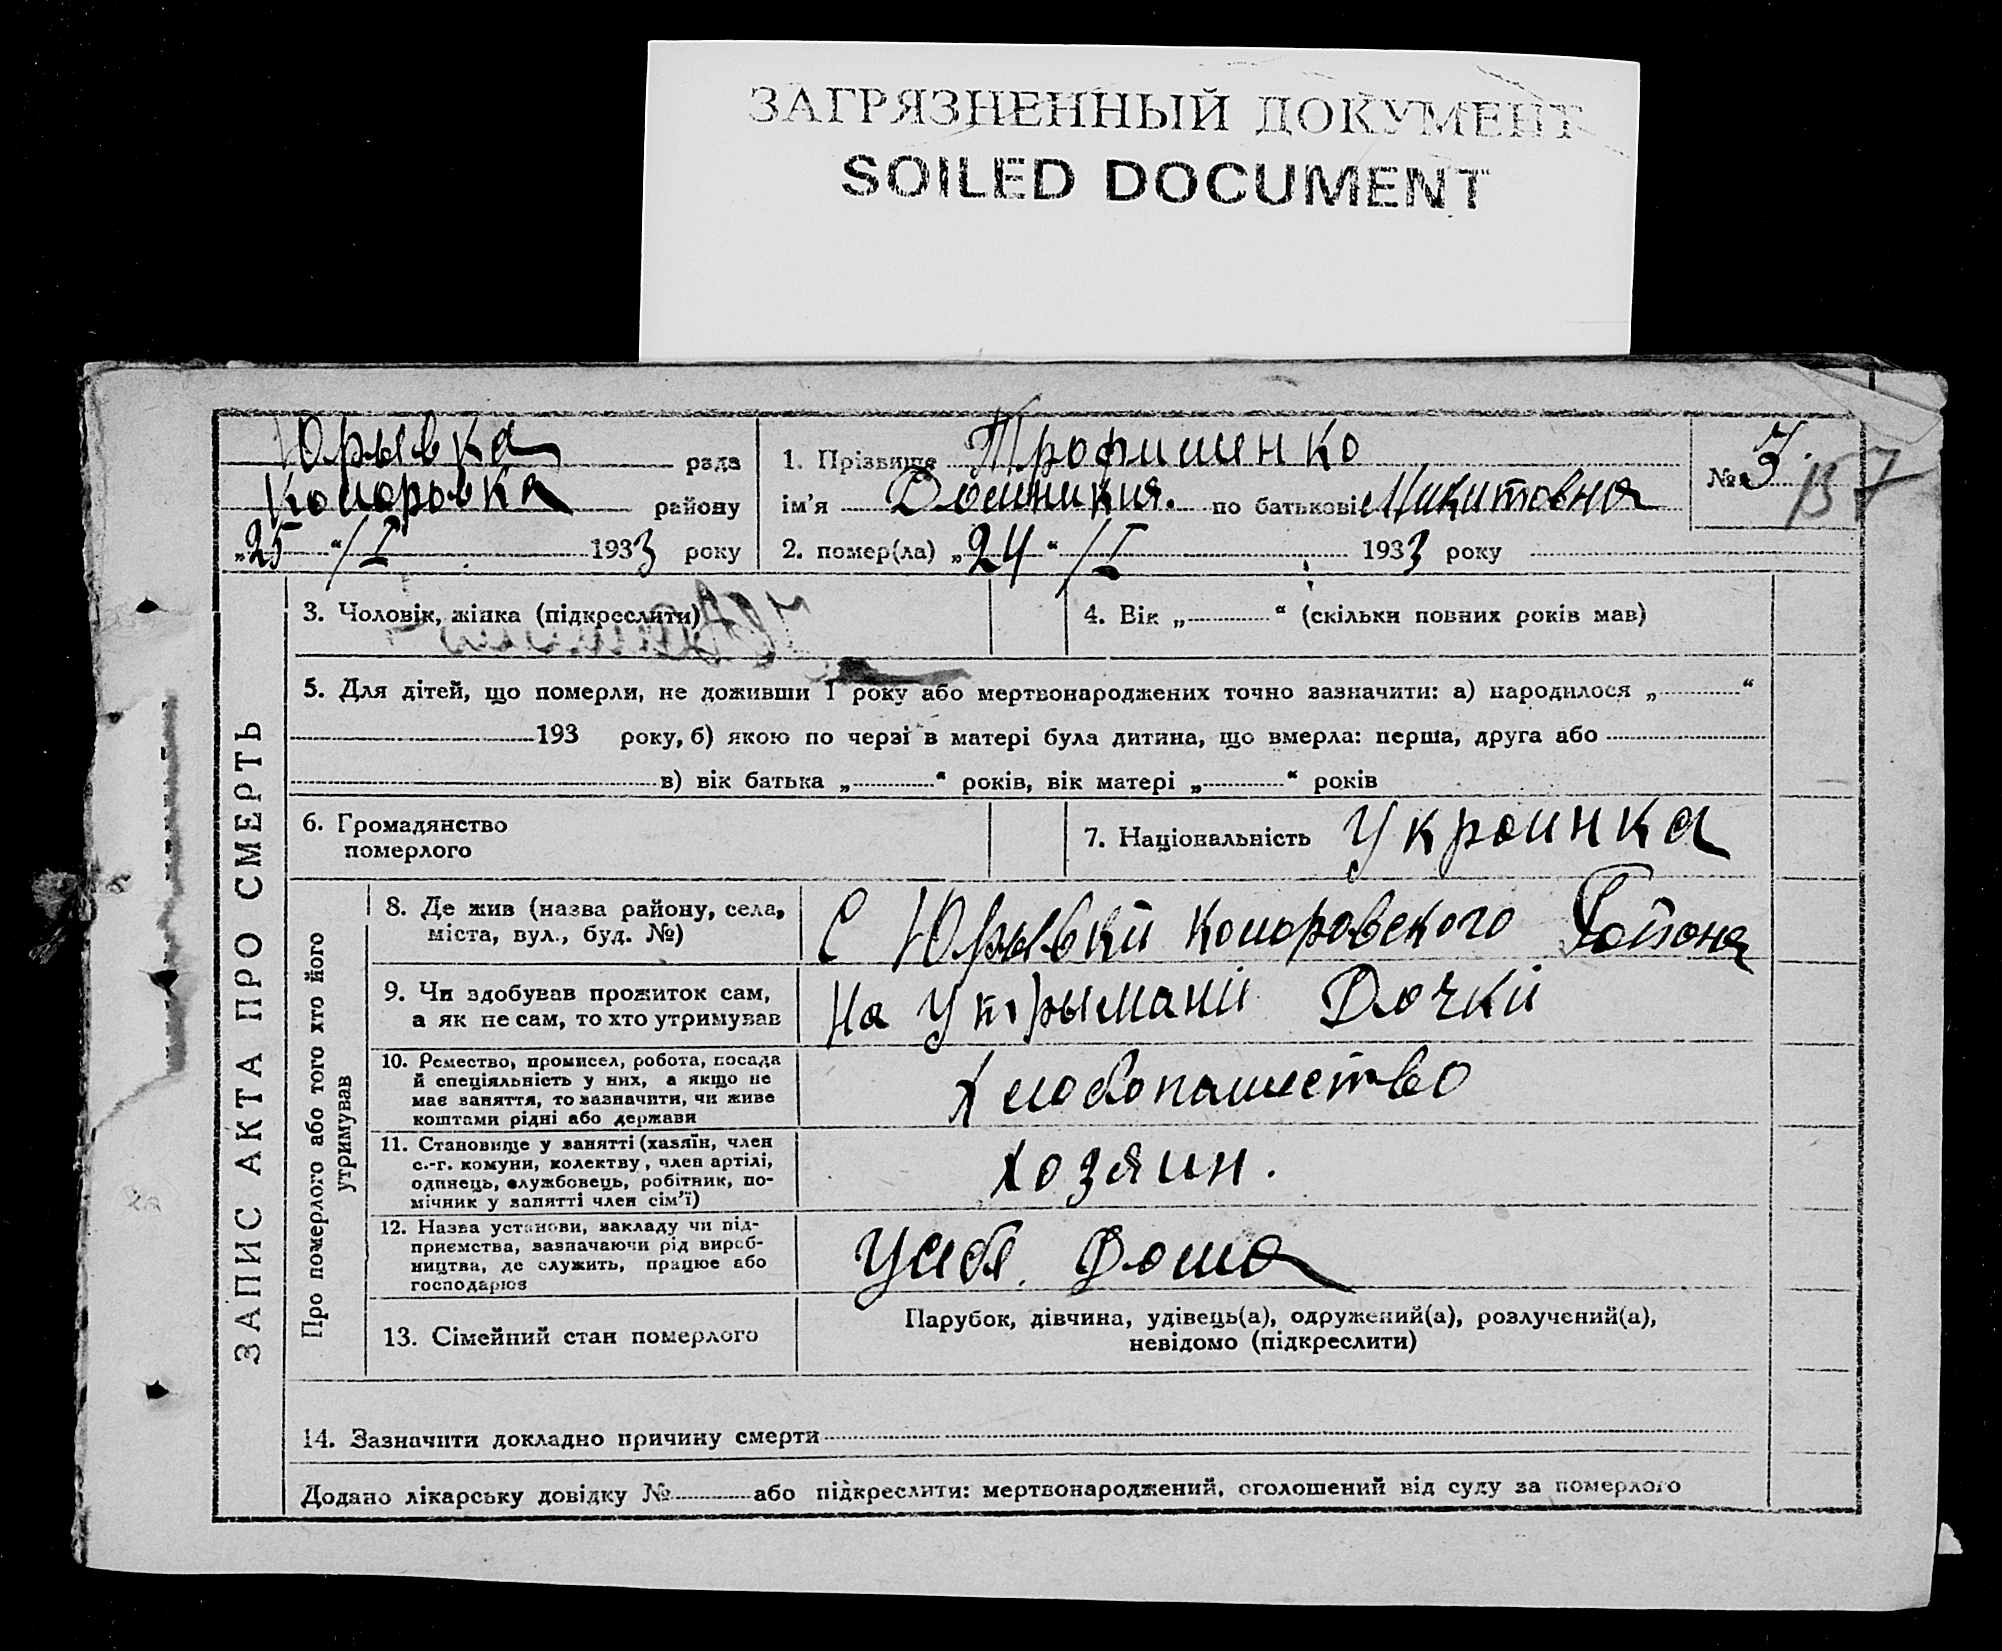 ЗАГРЯЗНЕННЫЙ ДОКУМЕНТ
SOILED DOCUMENT
Юрывка рада
Комаровка району
„25“ /I 1933 року
1. Прізвище Трофименко
ім'я Домникия. по батькові Микитовна
2. помер(ла) „24“ /I 1933 року
№ 3.
157
ЗАПИС АКТА ПРО СМЕРТЬ
3. Чоловік, жінка (підкреслити)
4. Вік „ “ (скільки повних років мав)
5. Для дітей, що померли, не доживши 1 року або мертвонароджених точно зазначити: а) народилося „ “
193 року, б) якою по черзі в матері була дитина, що вмерла: перша, друга або
в) вік батька „ “ років, вік матері „ “ років
6. Громадянство
померлого
7. Національність Украинка
Про померлого або того хто його
утримував
8. Де жив (назва району, села,
міста, вул., буд. №)
С Юрывки Комаровского Района
9. Чи здобував прожиток сам,
а як не сам, то хто утримував
На Утрыманіи Дочки
10. Ремество, промисел, робота, посада
й спеціяльність у них, а якщо не
має заняття, то зазначити, чи живе
коштами рідні або держави
Хлебопашество
11. Становище у занятті (хазяїн, член
с.-г. комуни, колективу, член артілі,
одинець, службовець, робітник, по-
мічник у занятті член сім'ї)
Хозяин.
12. Назва установи, закладу чи під-
приємства, зазначаючи рід вироб-
ництва, де служить, працює або
господарює
У себя Дома
13. Сімейний стан померлого
Парубок, дівчина, удівець(а), одружений(а), розлучений(а),
невідомо (підкреслити)
14. Зазначити докладно причину смерти
Додано лікарську довідку № або підкреслити: мертвонароджений, оголошений від суду за померлого